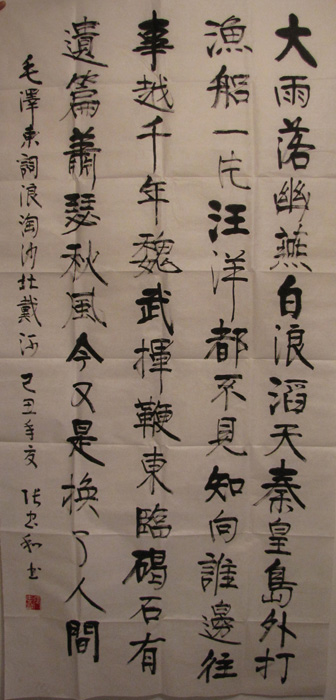 大雨落幽燕白浪滔天秦皇島外打
漁船一片汪洋都不見知向誰邊往
事越千年魏武揮鞭東臨碣石有
遺篇蕭瑟秋風今又是換了人間
毛澤東詞浪淘沙北戴河 己丑年夜 張忠和書